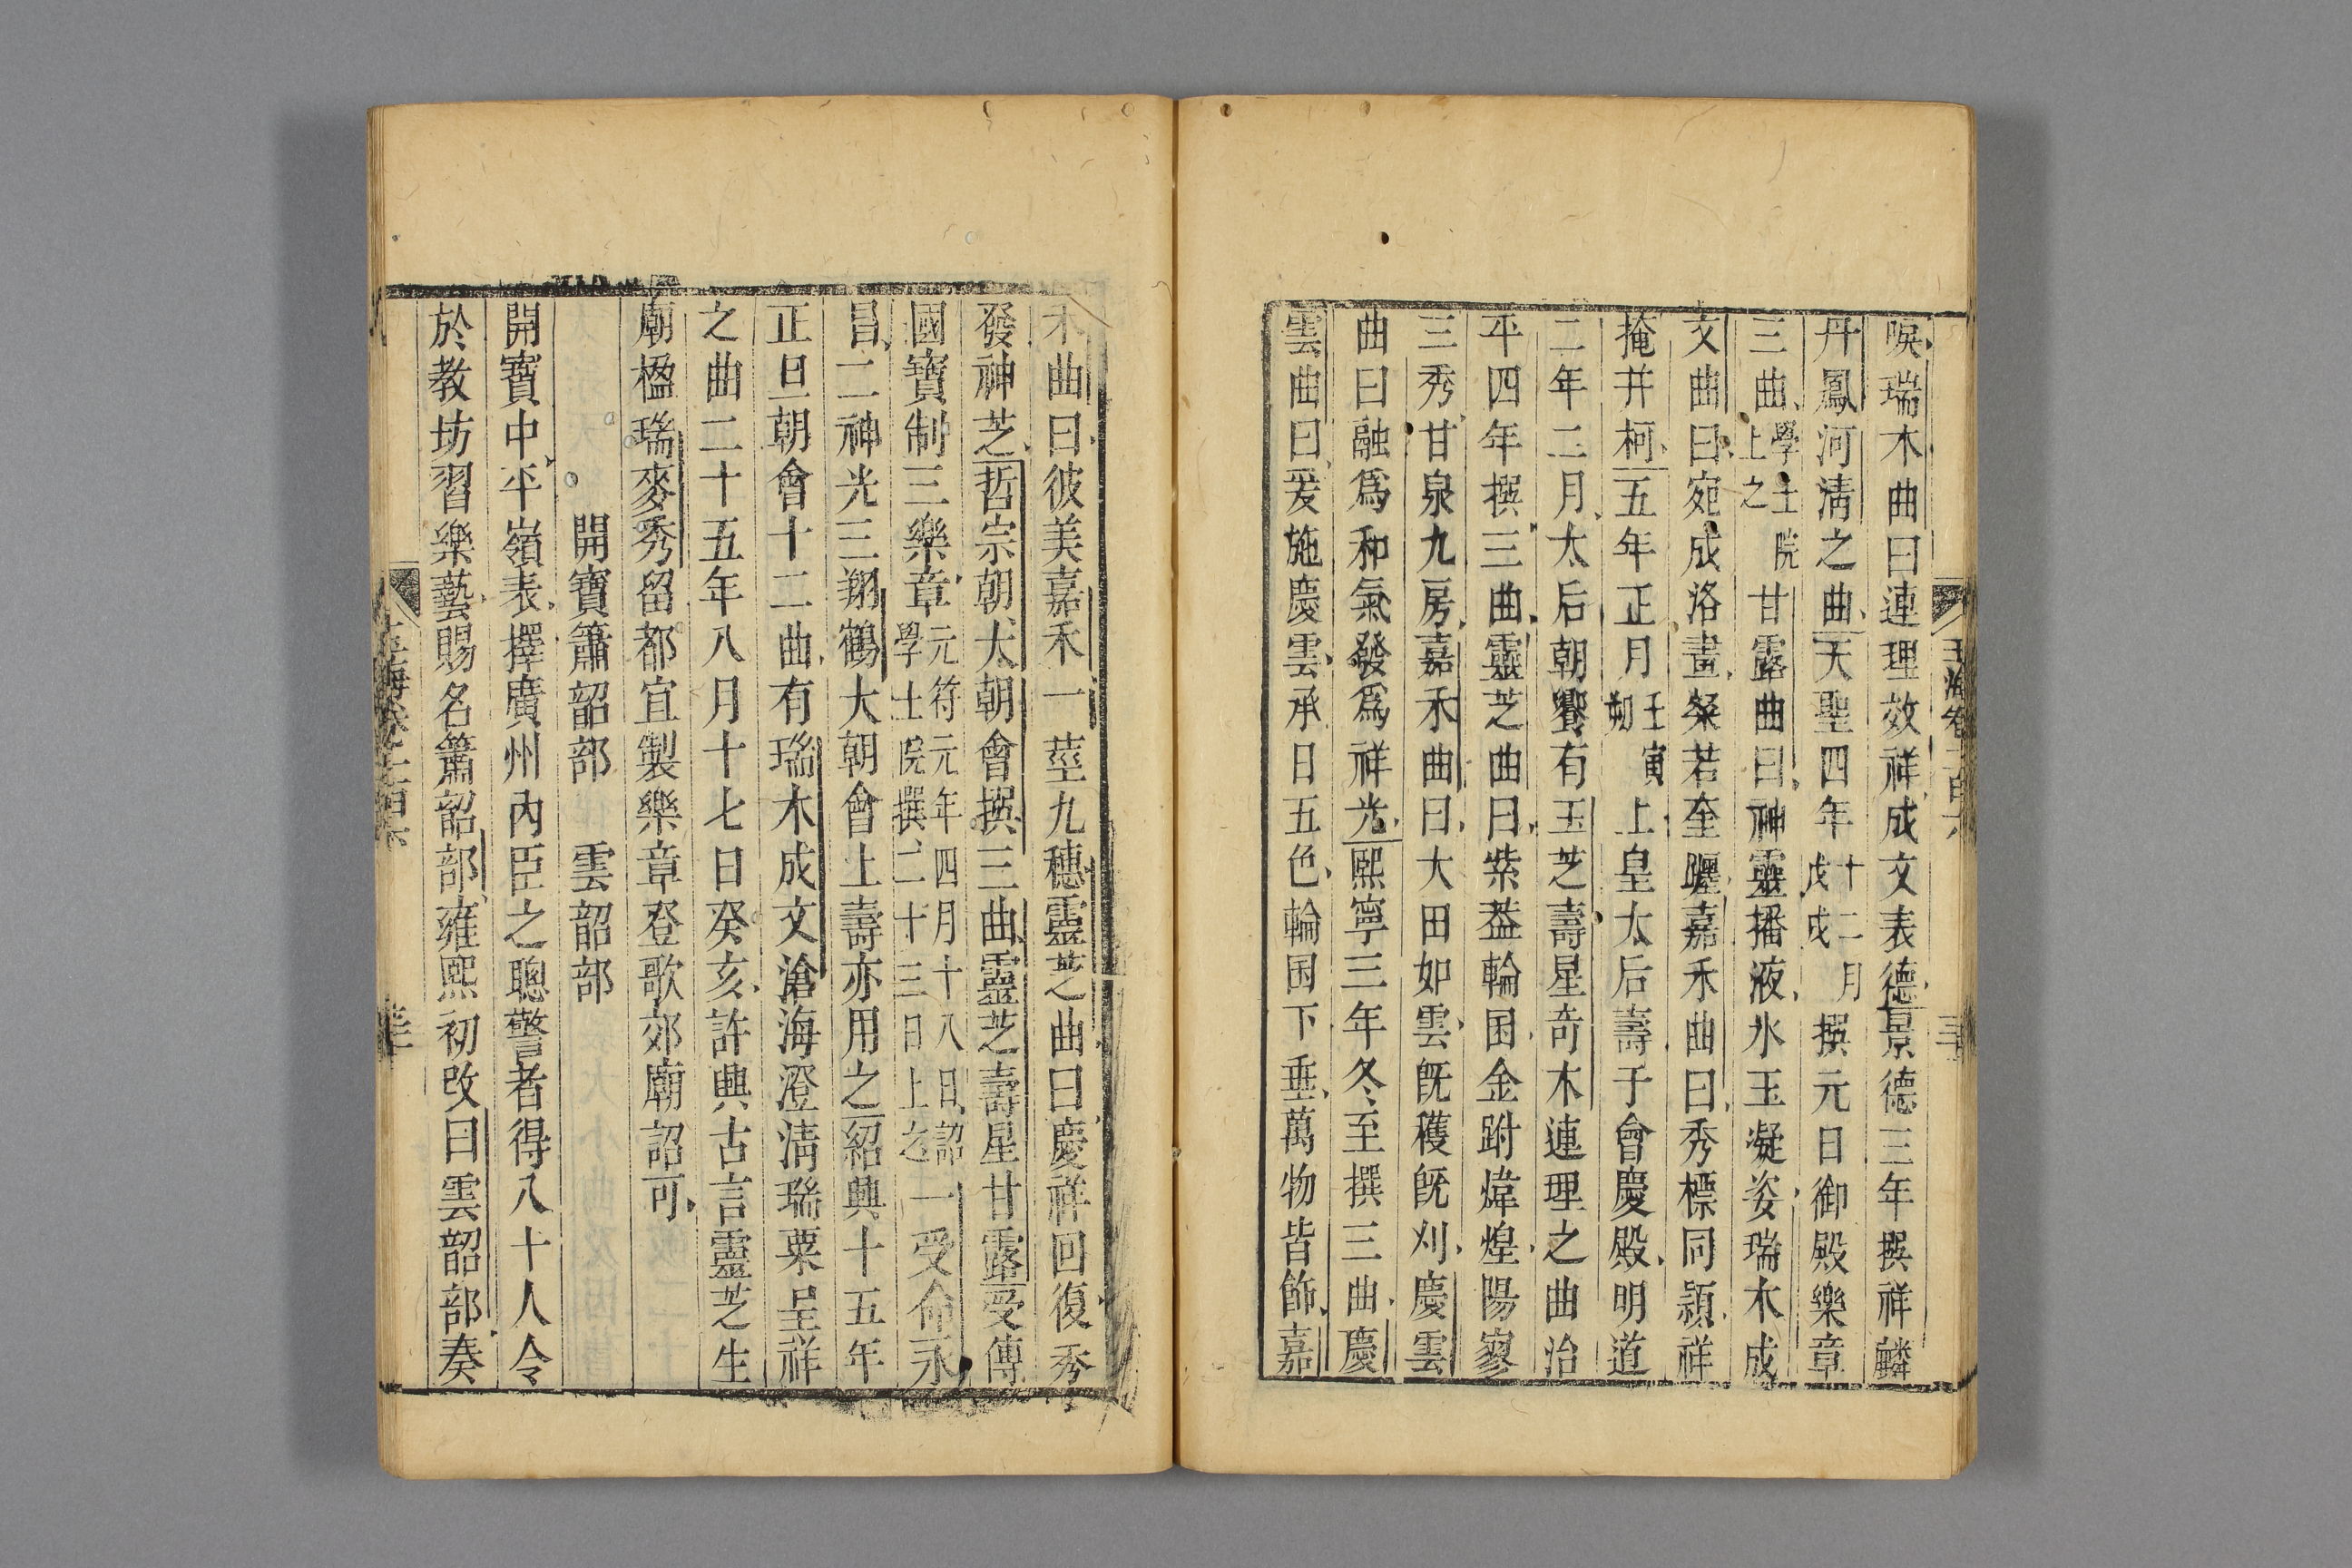 唳瑞木曲曰連理效祥成文表德景德三年撰祥麟
丹鳳河淸之曲天聖四年十二月戊戌撰元日御殿樂章
三曲學士院上之甘露曲曰神靈播液氷玉凝姿瑞木成
文曲曰宛成洛畫粲若奎躔嘉禾曲曰秀標同穎祥
掩幷柯五年正月壬寅朔上皇太后壽于會慶殿明道
二年二月太后朝饗有玉芝壽星奇木連理之曲治
平四年撰三曲靈芝曲曰紫葢輪囷金跗煒煌陽寥
三秀甘泉九房嘉禾曲曰大田如雲旣穫旣刈慶雲
曲曰融爲和氣發爲祥光熙寧三年冬至撰三曲慶
雲曲曰爰施慶雲承日五色輪囷下垂萬物皆飾嘉
禾曲曰彼美嘉禾一莖九穗靈芝曲曰慶祥回復秀
發神芝哲宗朝大朝會撰三曲靈芝壽星甘露受傳
國寶制三樂章元符元年四月十八日詔學士院撰二十三日上之一受命永
昌二神光三翔鶴大朝會上壽亦用之紹興十五年
正旦朝會十二曲有瑞木成文滄海澄淸瑞粟呈祥
之曲二十五年八月十七日癸亥許興古言靈芝生
廟楹瑞麥秀留都宜製樂章登歌郊廟詔可
開寶簫韶部　雲韶部
開寶中平嶺表擇廣州內臣之聰警者得八十人令
於教坊習樂藝賜名簫韶部雍熙初改曰雲韶部奏